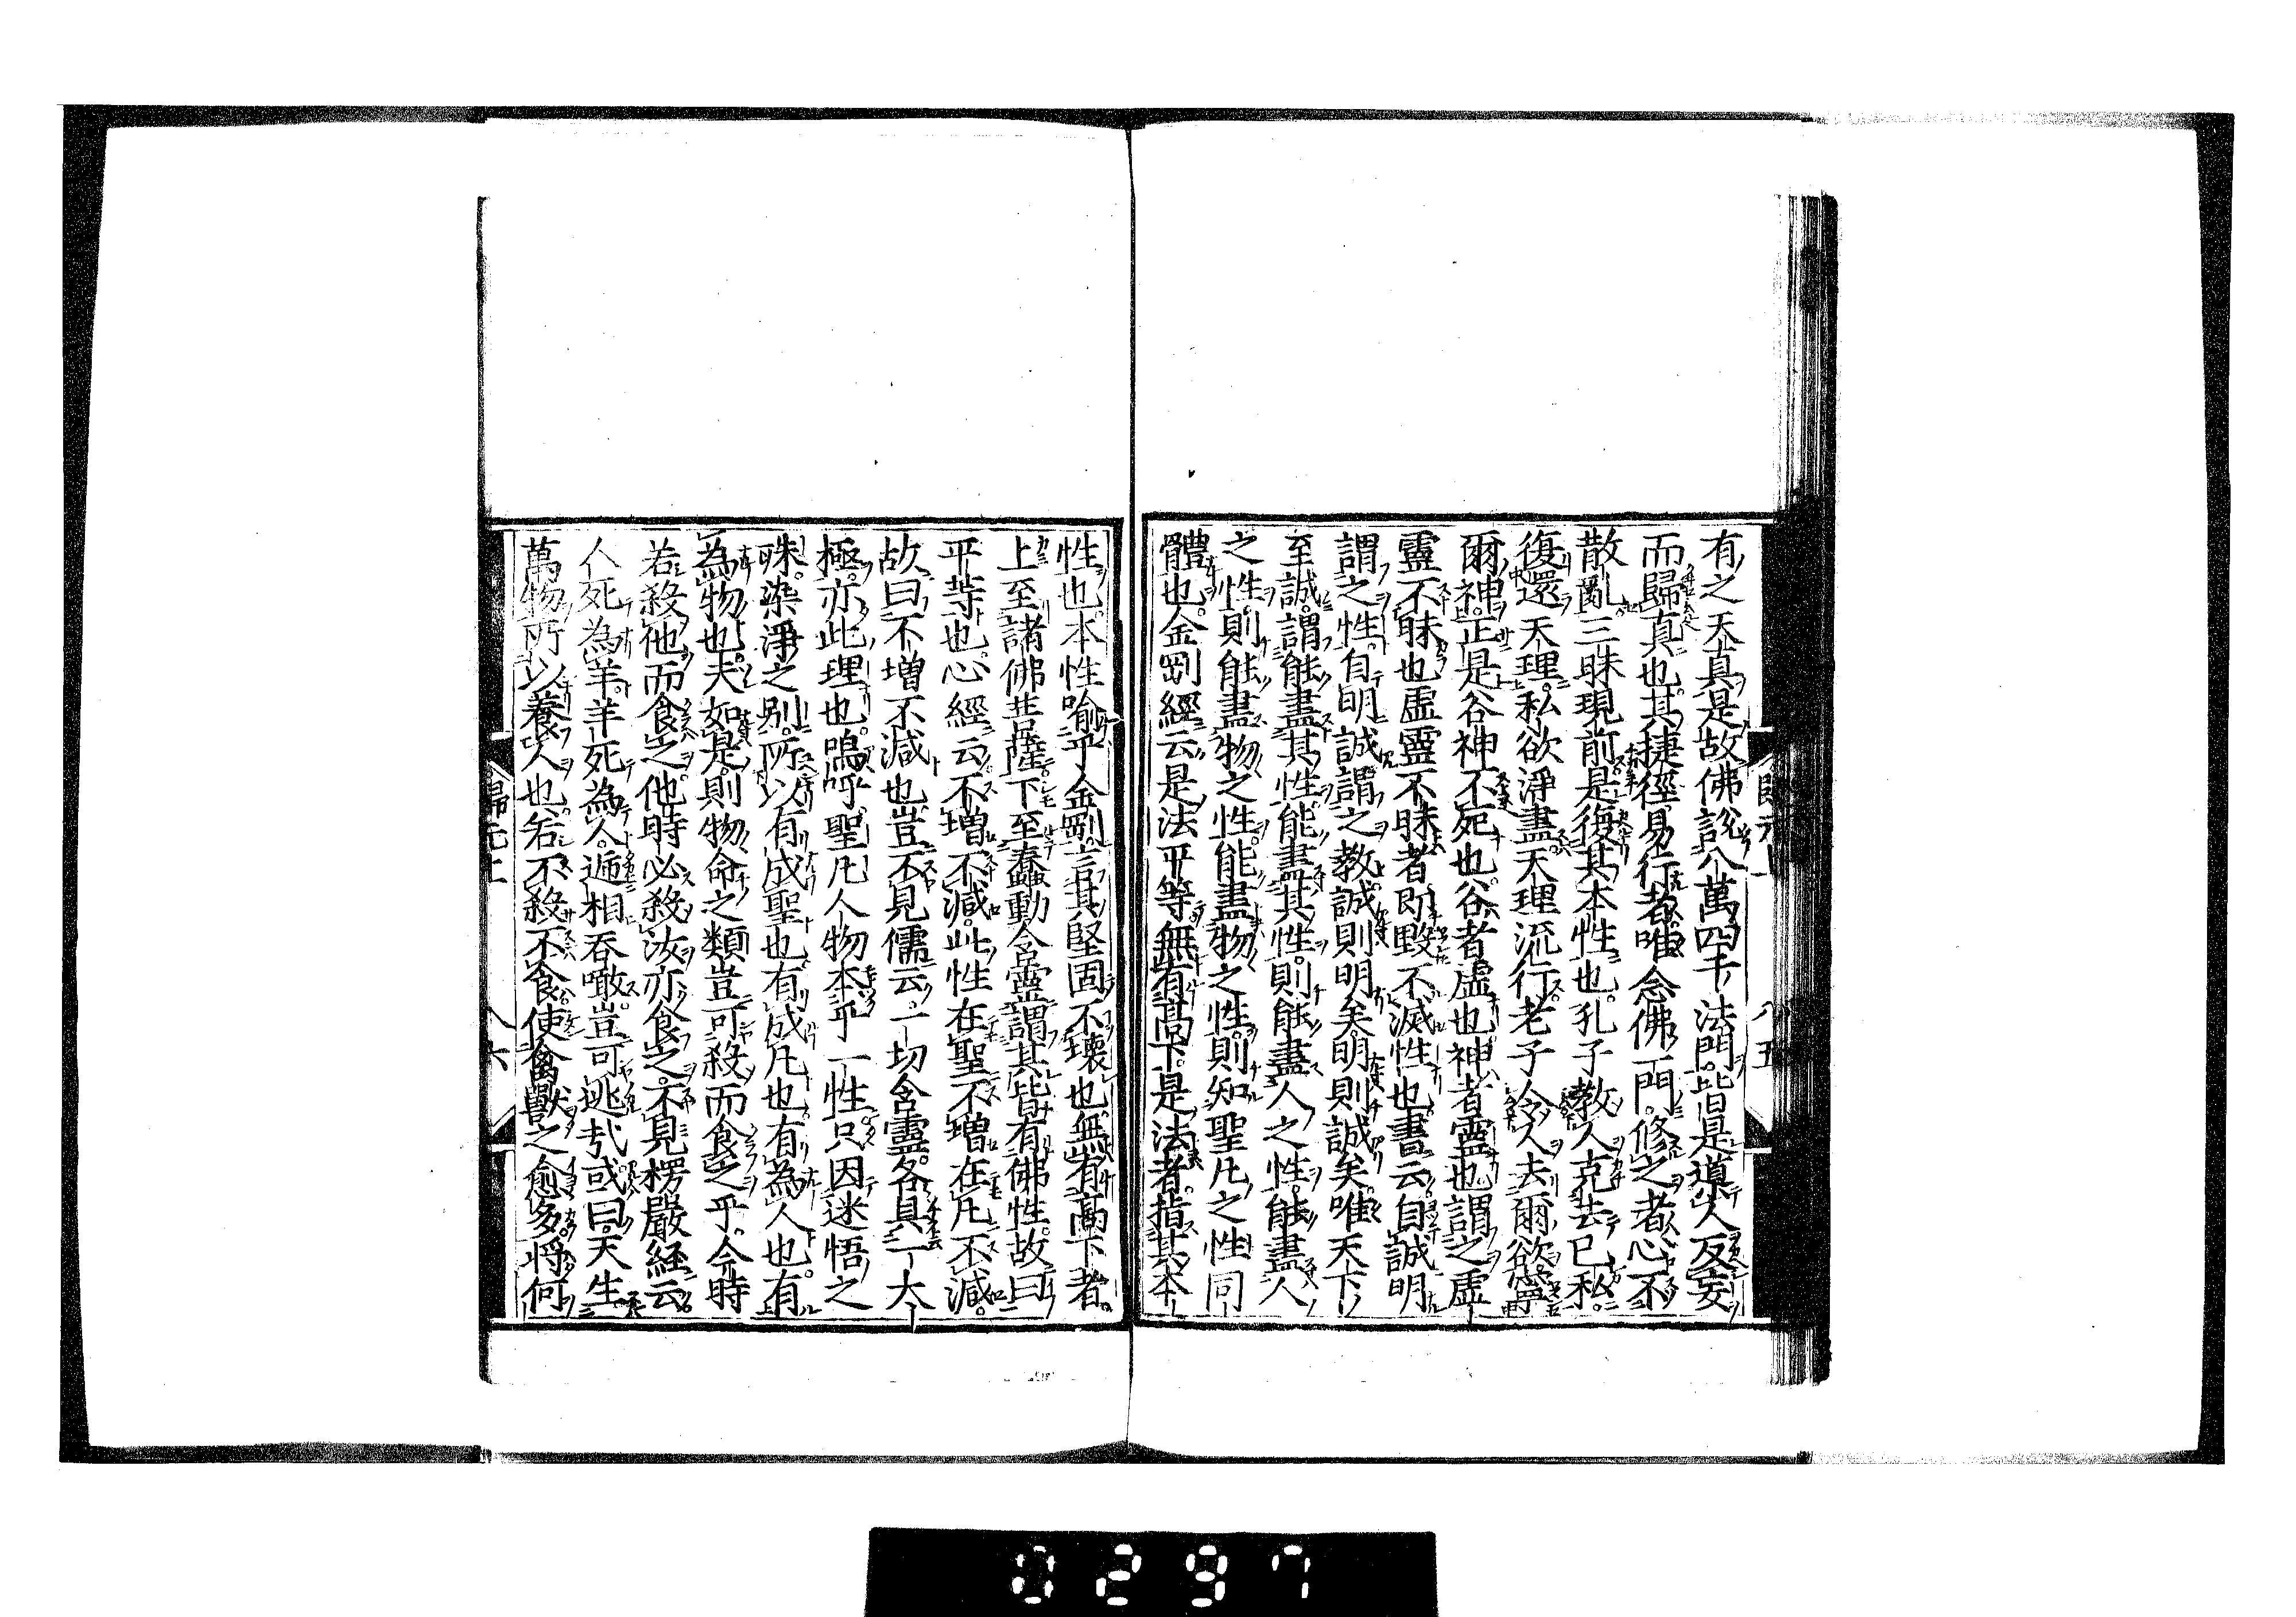 有之天真是故佛說八萬四千法門皆是導人反妄
而歸真也其捷徑易行者唯念佛一門修之者心不
散亂三昧現前是復其本性也孔子教人克去己私
復還天理私欲淨盡天理流行老子令人去爾欲寧
爾神正是谷神不死也谷者虛也神者靈也謂之虛
靈不昧也虛靈不昧者即毀不滅性也書云自誠明
謂之性自明誠謂之教誠則明矣明則誠矣唯天下
至誠謂能盡其性能盡其性則能盡人之性能盡人
之性則能盡物之性能盡物之性則知聖凡之性同
體也金剛經云是法平等無有高下是法者指其本
性也本性喻乎金剛言其堅固不壞也無有高下者
上至諸佛菩薩下至蠢動含靈謂其皆有佛性故曰
平等也心經云不增不減此性在聖不增在凡不減
故曰不增不減也豈不見儒云一切含靈各具一大
極亦此理也嗚呼聖凡人物本乎一性只因迷悟之
殊染淨之別所以有成聖也有成凡也有為人也有
為物也夫如是則物命之類豈可殺而食之乎今時
若殺他而食之他時必殺汝亦食之不見楞嚴經云
人死為羊羊死為人遞相吞噉豈可逃哉或曰天生
萬物所以養人也若不殺不食使禽獸之愈多將何
歸元上
六
0297